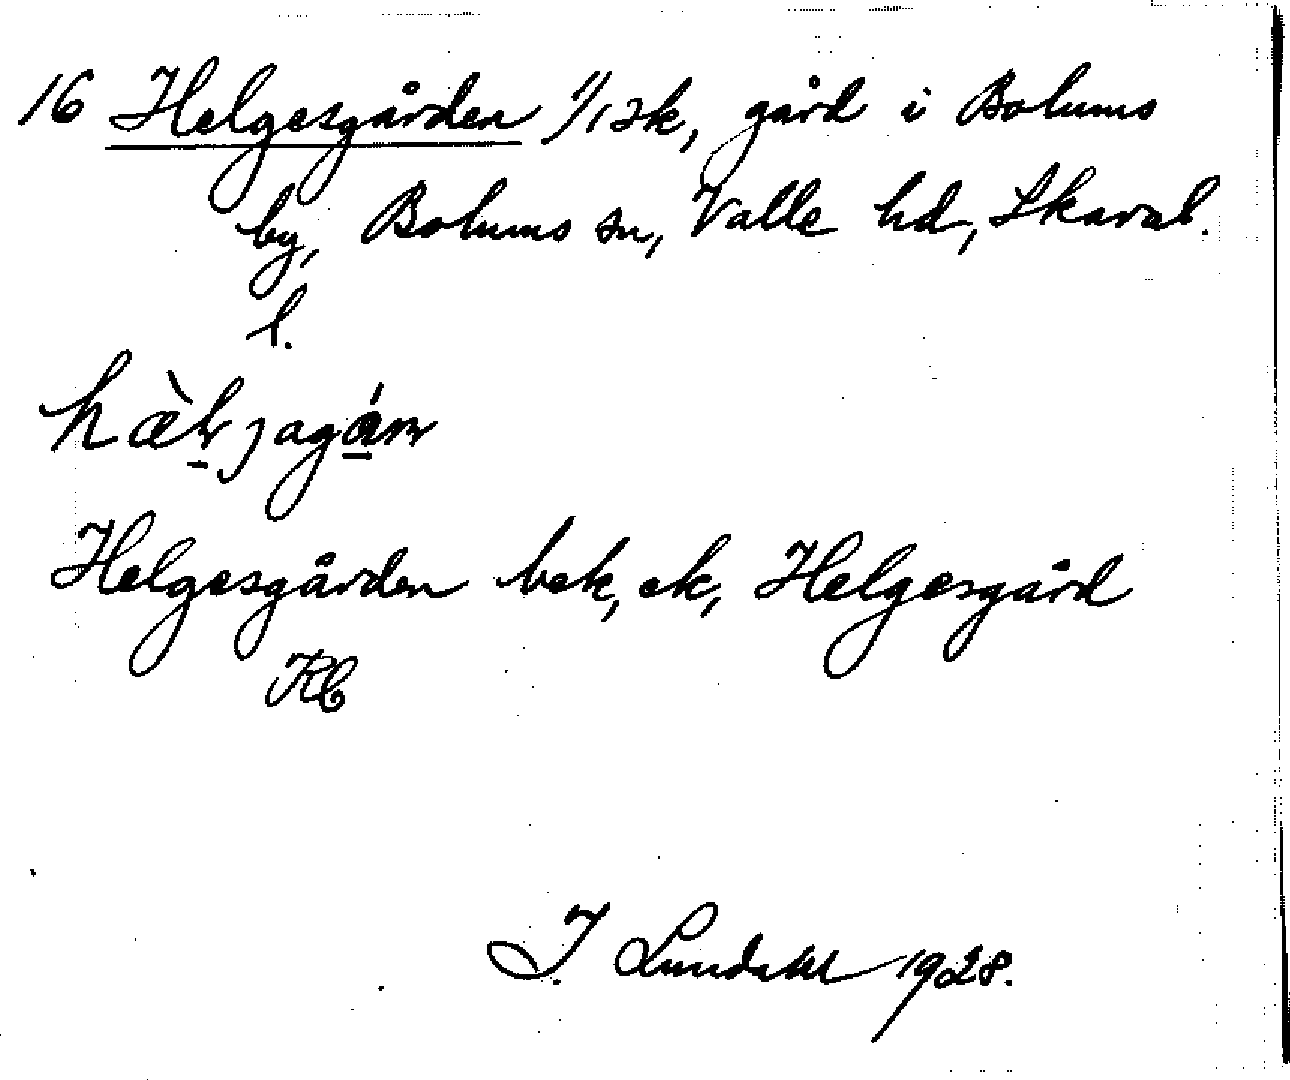 16 Helgesgården 1/1 sk, gård i Bolums
by, Bolums sn, Valle hd, Skarab.
l.
hæljagán
Helgesgården bek, ek, Helgesgård
RC
I. Lundahl 1928.